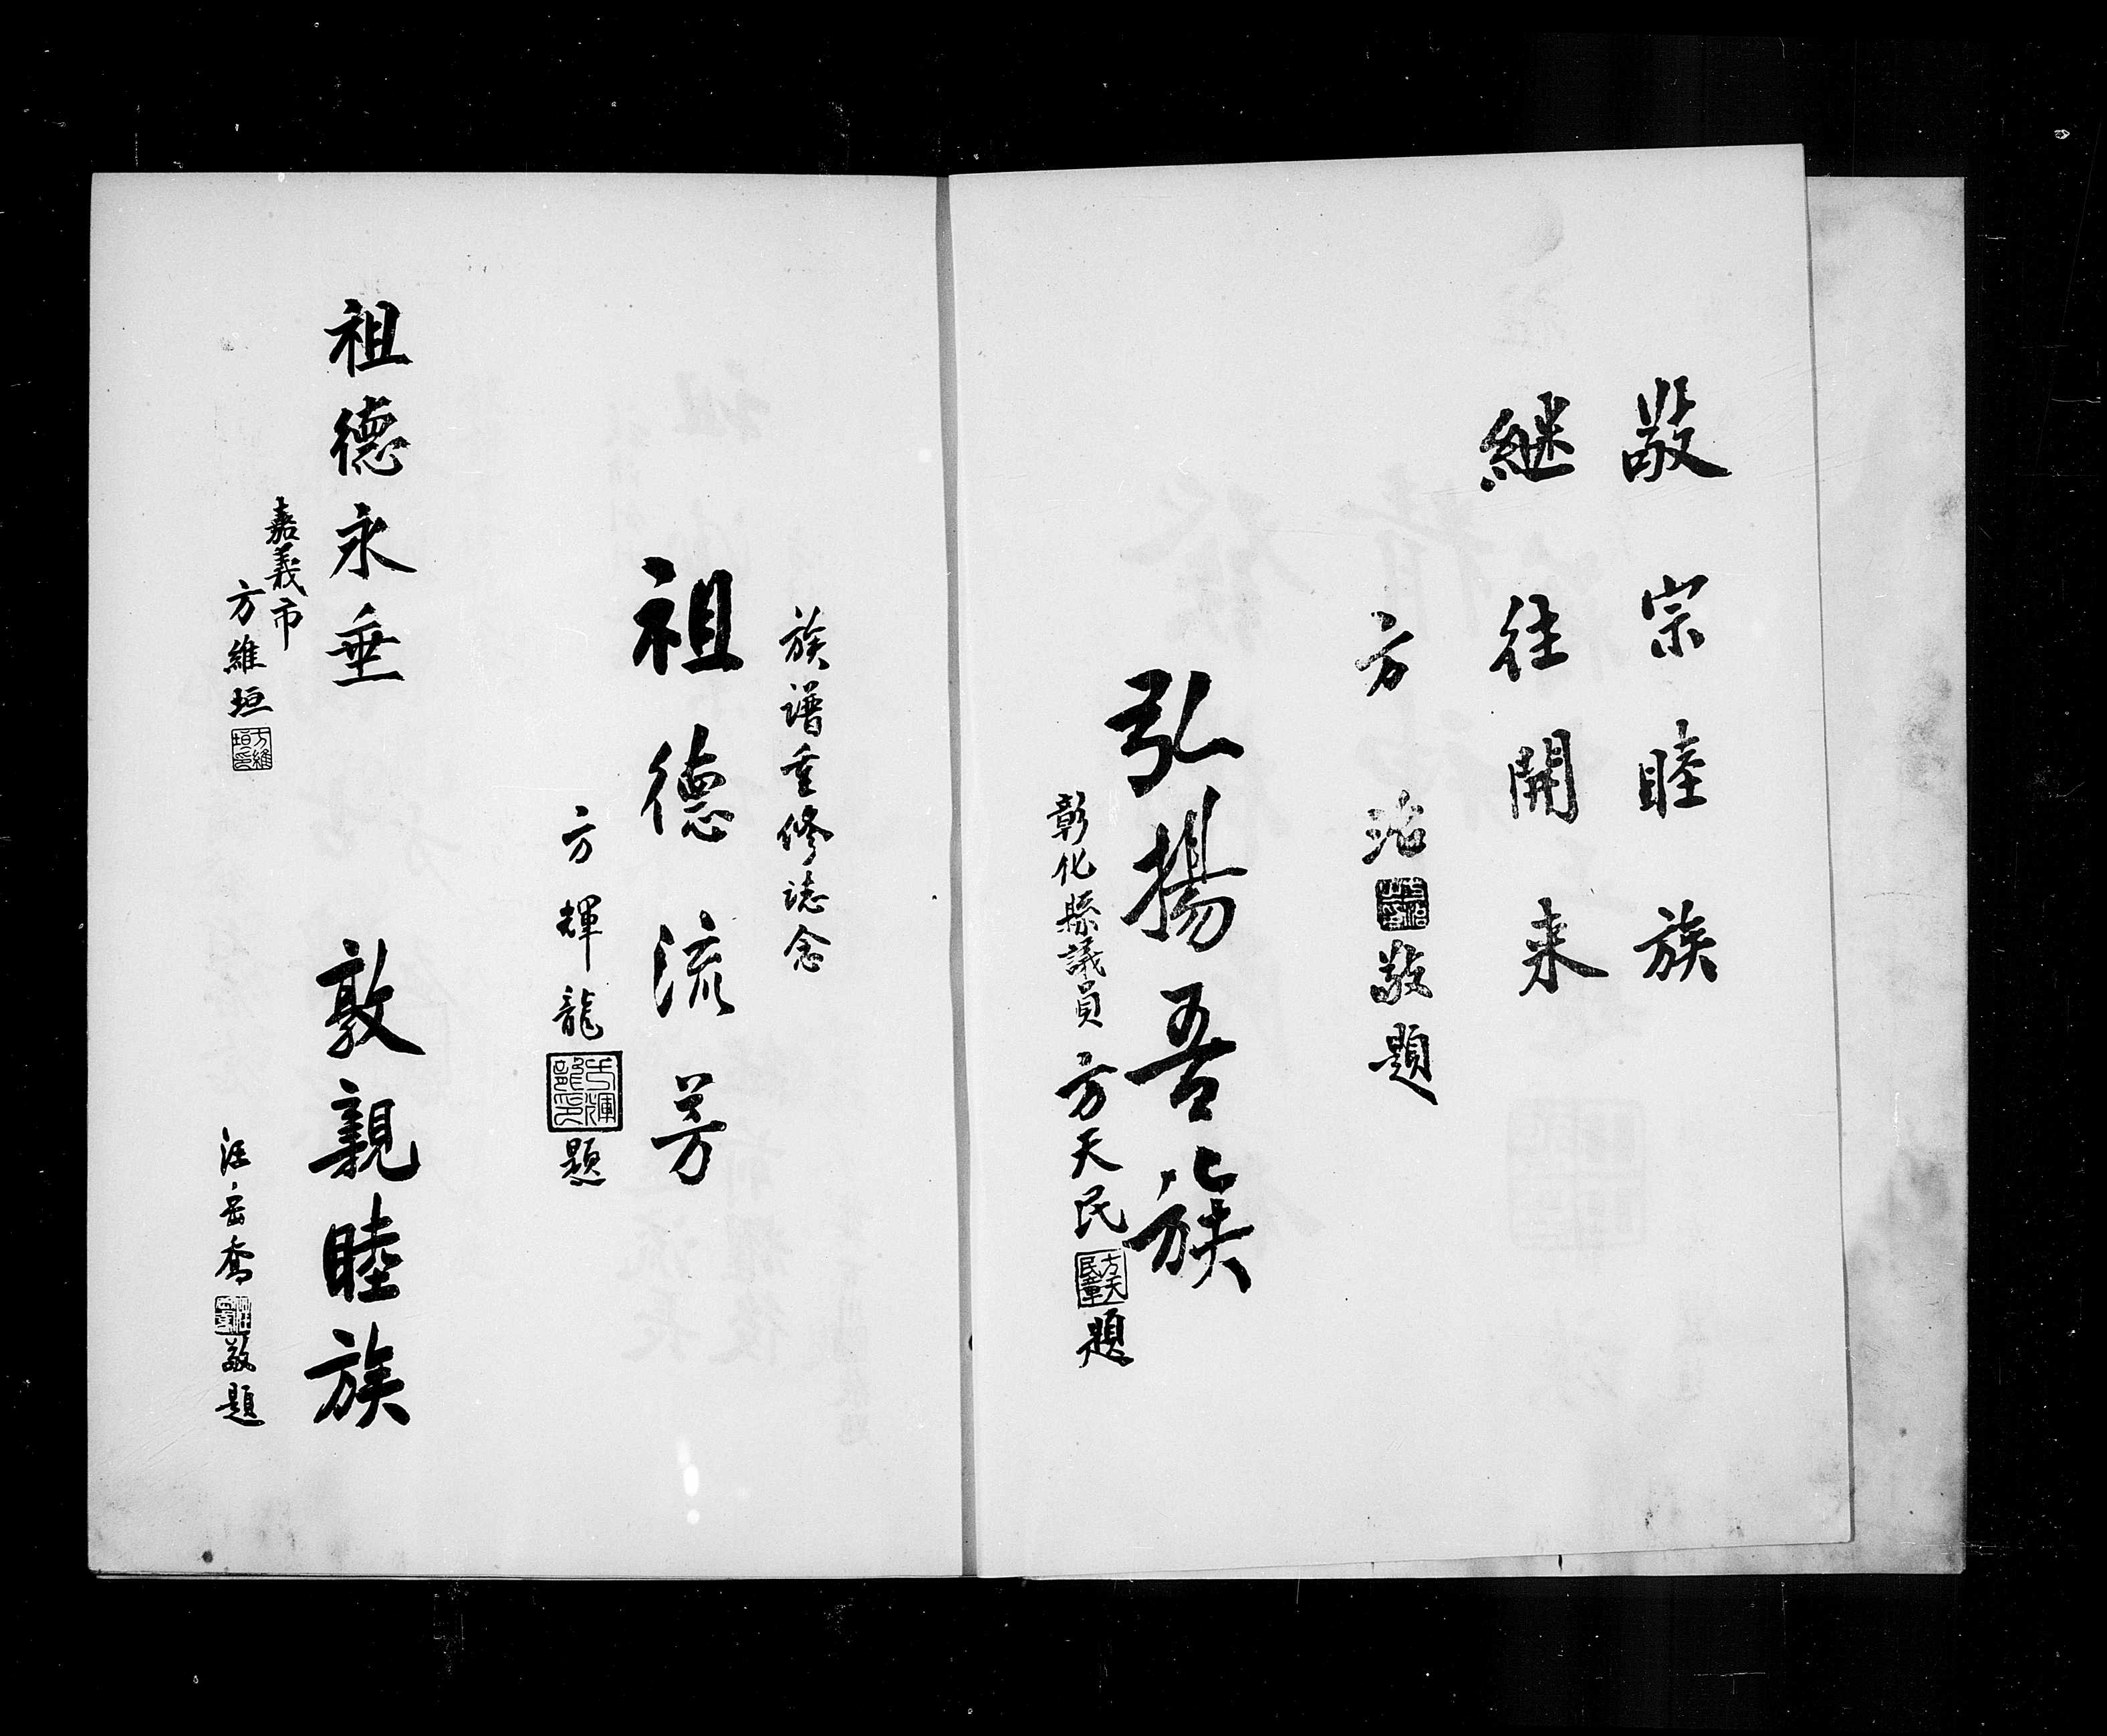 敬宗睦族
継往開来
方治敬題
弘揚吾族
彰化縣議員 方天民 方天民章 題
族譜重修誌念
祖德流芳
方輝龍題
祖德永垂
嘉義市
方維垣
敦親睦族
汪岳喬敬題